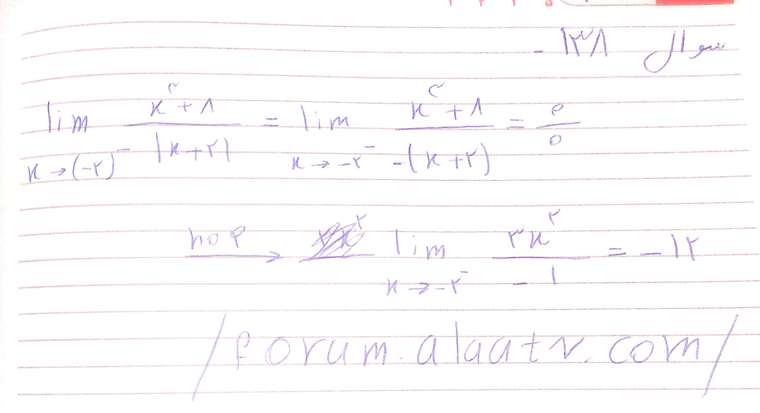 سوال ۱۳۸ -
lim x→(-۲)⁻ x³+۸ / |x+۲| = lim x→-۲⁻ x³+۸ / -(x+۲) = ۰/۰
hop → lim x→-۲⁻ ۳x² / -۱ = -۱۲
/forum.alaatv.com/